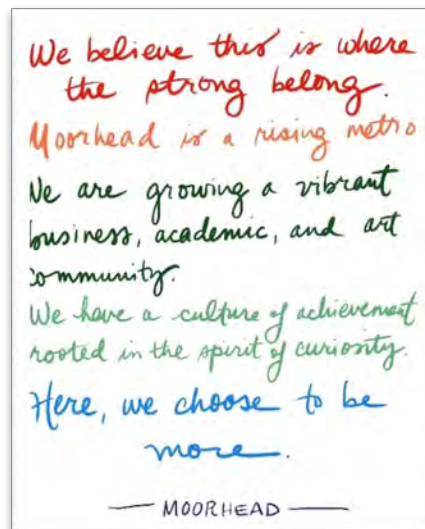 We believe this is where
the strong belong.
Moorhead is a rising metro
We are growing a vibrant
business, academic, and art
community.
We have a culture of achievement
rooted in the spirit of curiosity.
Here, we choose to be
more.
— MOORHEAD —